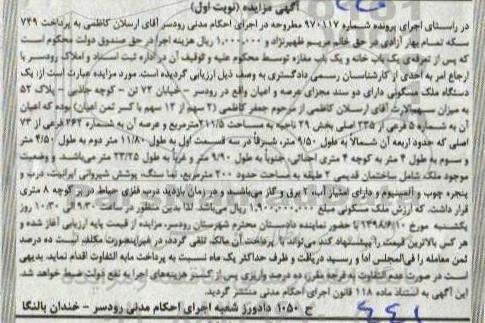 آگهی مزایده (نوبت اول)
در راستای اجرای پرونده شماره ۹۷۰۱۱۷ مطروحه در اجرای احکام مدنی رودسر آقای ارسلان کاظمی به پرداخت ۷۴۹
سکه تمام بهار آزادی در حق خانم مریم ظهیرنژاد و ۱,۰۰۰,۰۰۰ ریال هزینه اجرا در حق صندوق دولت محکوم است
که پس از تعرفه‌ی یک باب خانه و یک باب مغازه توسط محکوم علیه و توقیف آن در اداره ثبت اسناد و املاک رودسر با
ارجاع امر به احدی از کارشناسان رسمی دادگستری به وصف ذیل ارزیابی گردیده است. مورد مزایده عبارت است از، یک
دستگاه ملک مسکونی دارای دو سند مجزای عرصه و اعیان واقع در رودسر – خیابان ۷۲ تن – کوچه جاذبی – پلاک ۵۲
به میزان سهم‌الارث آقای ارسلان کاظمی از مرحوم جعفر کاظمی (۲ سهم از ۱۲ سهم با کسر ثمن اعیان) بوده که اعیان
آن به شماره ۵ فرعی از ۲۳۵ اصلی بخش ۲۹ ناحیه به مساحت ۲۱۱/۵ مترمربع و عرصه آن به شماره ۲۶۲ فرعی از ۷۳
اصلی که حدود اربعه آن شمالاً به طول ۹/۵۰ متر، شرقاً در سه قسمت اول به طول ۱۱/۸۰ متر دوم به طول ۴/۵۰ متر
و سوم به طول ۴ متر به کوچه ۴ متری اجتنائی، جنوباً به طول ۹/۹۰ متر و غرباً به طول ۲۳/۲۵ متر می‌باشد. و وضعیت
موجود ملک شامل ساختمان قدیمی ۲ طبقه به مساحت حدود ۲۰۰ مترمربع، نما سنگ، پوشش شیروانی ایرانیت، درب و
پنجره چوب و آلمینیوم و دارای امتیاز آب، ۲ برق و گاز می‌باشند و در زمان بازدید درب فلزی حیاط در بر کوچه ۸ متری
قرار داشت. که ارزش ملک مسکونی مبلغ ۱,۹۰۰,۰۰۰,۰۰۰ ریال می‌باشد. لذا بدین منظور در ساعت ۹:۳۰ الی ۱۰:۳۰ روز
یکشنبه مورخ ۱۳۹۸/۶/۱۰ با حضور نماینده دادستان محترم شهرستان رودسر، مزایده از قیمت پایه ارزیابی آغاز شده و
هر کس بالاترین قیمت را پیشنهاد کند می‌تواند با پرداخت آن مالک تلقی گردد، در غیراینصورت مکلف است ده درصد
ثمن معامله را فی‌المجلس ادا و رسید دریافت و ظرف حداکثر یک ماه نسبت به پرداخت مابه التفاوت اقدام نماید. بدیهی
است در صورت عدم پرداخت ده درصد واریزی پس از کسر هزینه‌های اجرا به نفع دولت ضبط خواهد شد.
این آگهی به استناد ماده ۱۱۸ قانون اجرای احکام مدنی منتشر گردید.
ح ۱۰۵۰ دادورز شعبه اجرای احکام مدنی رودسر – خندان بالنگا